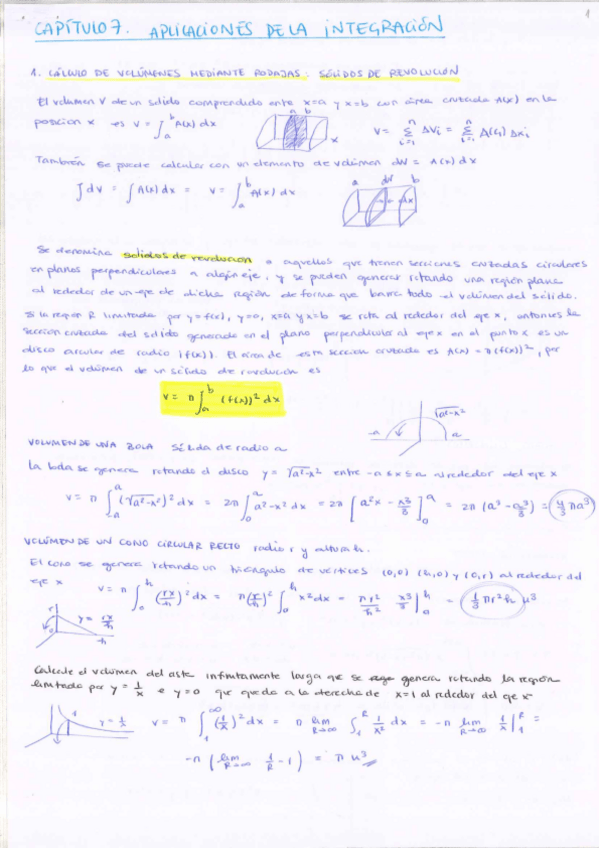 1
CAPÍTULO 7. APLICACIONES DE LA INTEGRACIÓN
1. CÁLCULO DE VOLÚMENES MEDIANTE RODAJAS: SÓLIDOS DE REVOLUCIÓN
El volumen V de un sólido comprendido entre x=a y x=b con área cruzada A(x) en la
posición x es V = ∫_a^b A(x) dx
a b
x
V = Σ_{i=1}^n ΔVi = Σ_{i=1}^n A(ci) Δxi
También se puede calcular con un elemento de volumen dV = A(x) dx
∫dV = ∫A(x) dx = V = ∫_a^b A(x) dx
a dV b
dx
Se denomina sólidos de revolución a aquellos que tienen secciones cruzadas circulares
en planos perpendiculares a algún eje, y se pueden generar rotando una región plana
al rededor de un eje de dicha región de forma que barra todo el volumen del sólido.
Si la region R limitada por y=f(x), y=0, x=a y x=b se rota al rededor del eje x, entonces la
sección cruzada del sólido generada en el plano perpendicular al eje x en el punto x es un
disco circular de radio |f(x)|. El área de esta sección cruzada es A(x) = π(f(x))², por
lo que el volumen de un sólido de revolución es
V = π ∫_a^b (f(x))² dx
√a²-x²
-a a
VOLUMEN DE UNA BOLA SÓLIDA de radio a
La bola se genera rotando el disco y = √a²-x² entre -a ≤ x ≤ a al rededor del eje x
V = π ∫_{-a}^a (√a²-x²)² dx = 2π ∫_0^a a²-x² dx = 2π [a²x - x³/3]_0^a = 2π (a³ - a³/3) = 4/3 πa³
VOLÚMEN DE UN CONO CIRCULAR RECTO radio r y altura h.
El cono se genera rotando un triángulo de vértices (0,0) (h,0) y (0,r) al rededor del
eje x V = π ∫_0^h (rx/h)² dx = π(r/h)² ∫_0^h x² dx = πr²/h² x³/3 |_0^h = 1/3 πr²h u³
r
y = rx/h
h
Calcule el volúmen del asta infinitamente larga que se genera rotando la región
limitada por y = 1/x e y=0 que queda a la derecha de x=1 al rededor del eje x
y = 1/x
1
V = π ∫_1^∞ (1/x)² dx = π lim_{R→∞} ∫_1^R 1/x² dx = -π lim_{R→∞} 1/x |_1^R =
-π (lim_{R→∞} 1/R - 1) = π u³